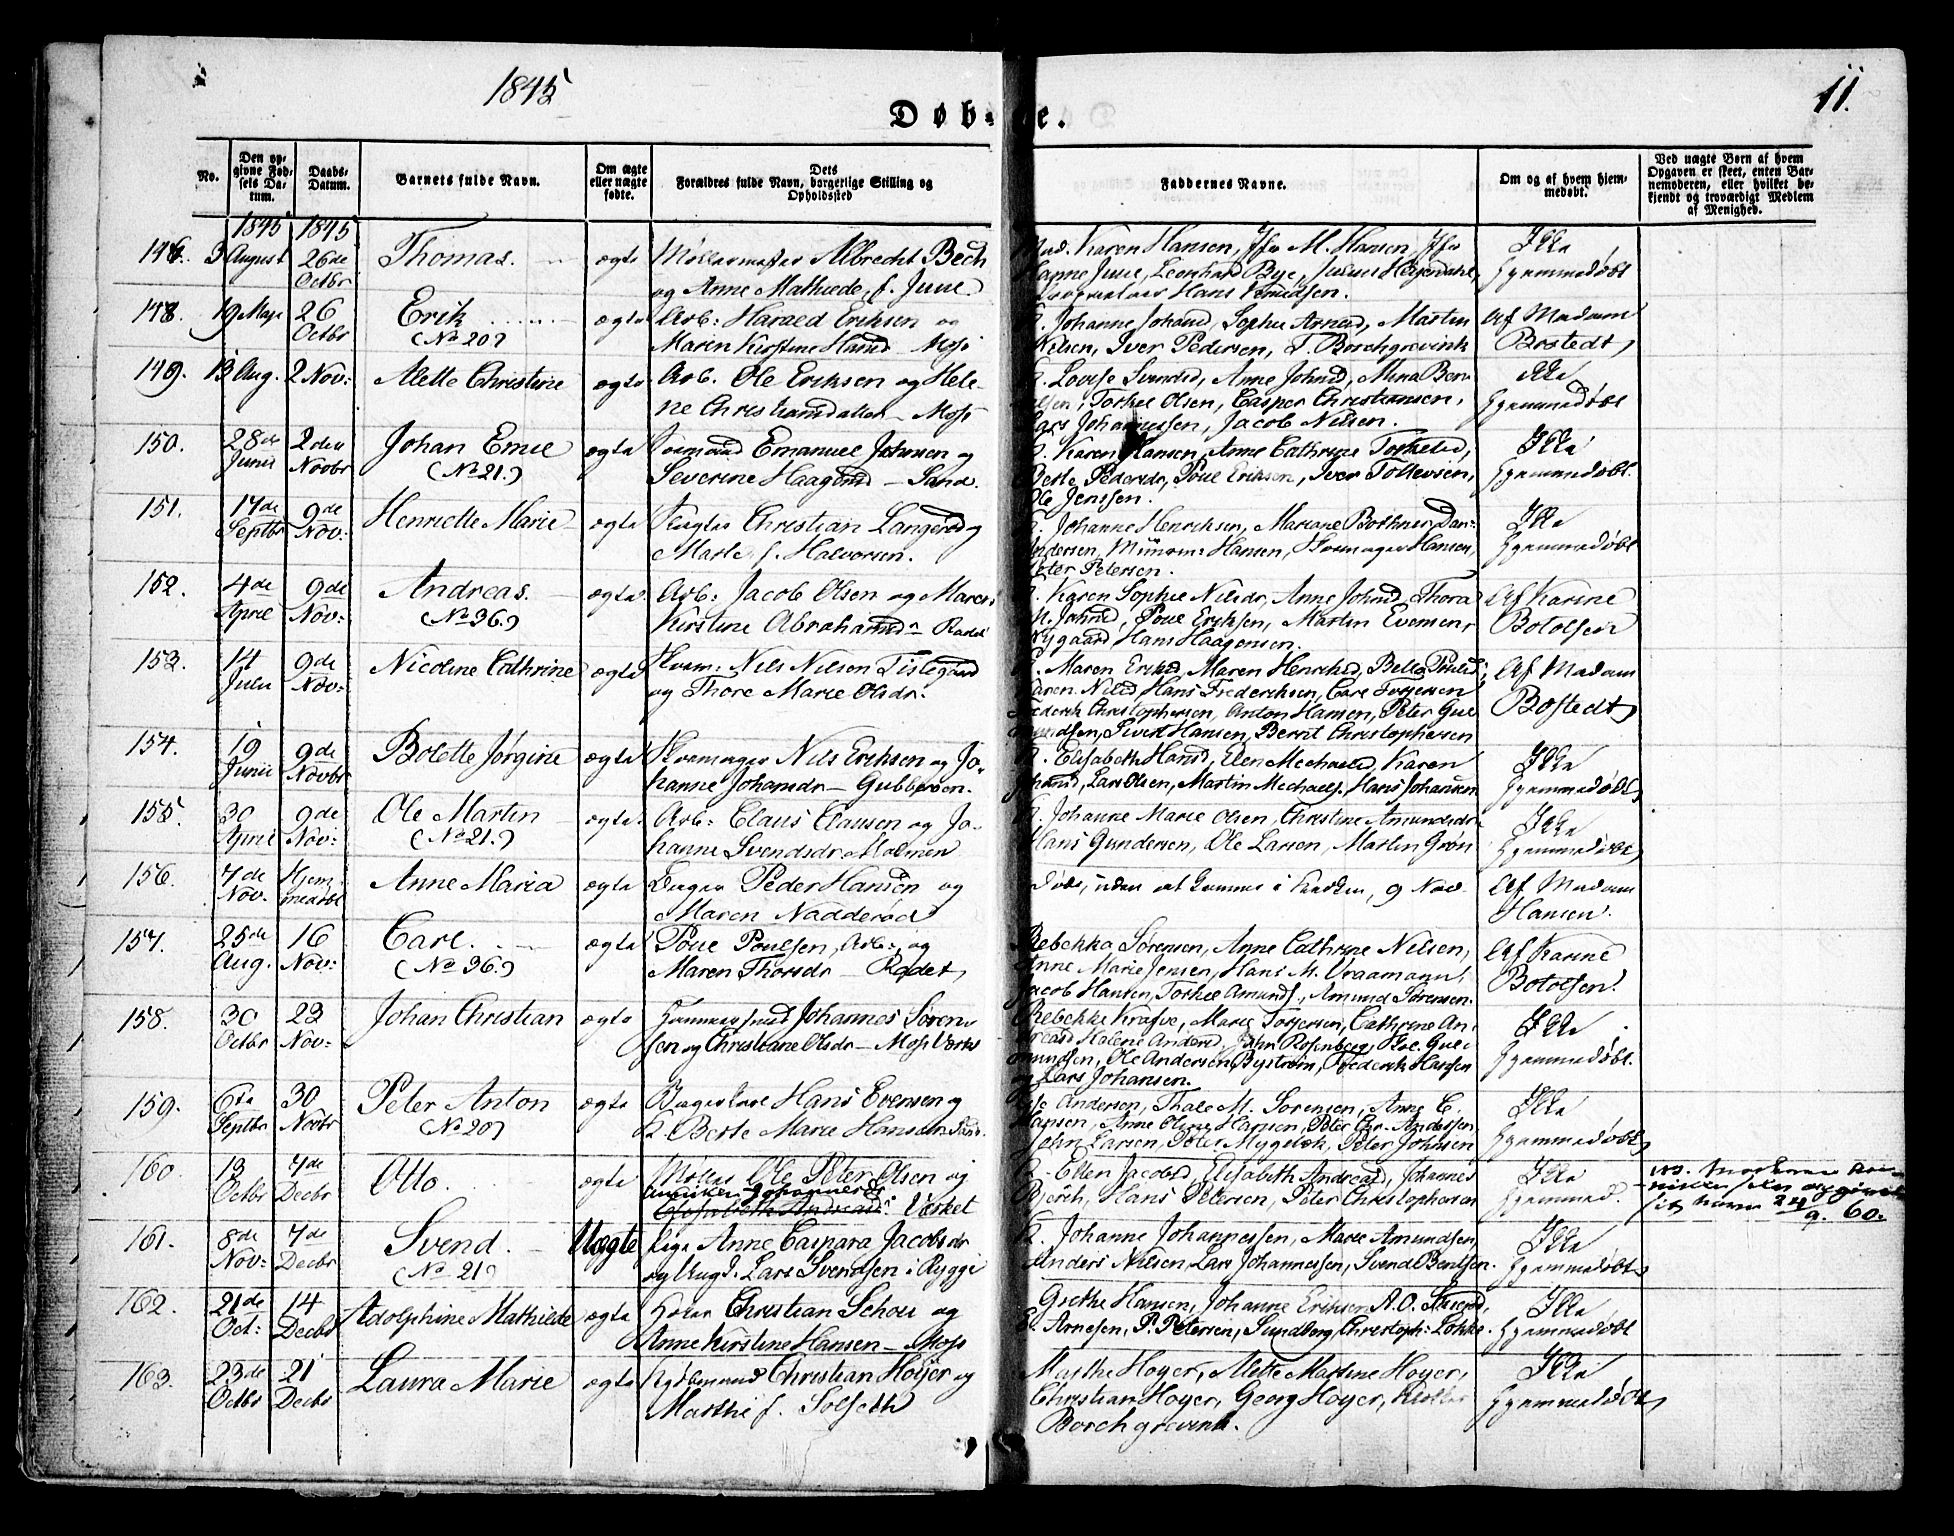 1845
11.
Døbte.
No.
Den opgivne Fødsels Datum.
Daabs-Datum.
Barnets fulde Navn.
Om ægte eller uægte fødte.
Dets Forældres fulde Navn, borgerlige Stilling og Opholdssted
Faddernes Navne.
Om og af hvem hjemmedøbt.
Ved uægte Børn af hvem Opgaven er skeet, enten Barnemoderen, eller hvilket bekjendt og troværdigt Medlem af Menighed.
1845 1845
146. 3 August 26de Octbr Thomas. ægte Albrecht Bech
og Anne Mathilde, f. Juul
Mad. Karen Hansen, Jfr M. Hansen, Jfr
Hanne Juul, Leonhard Bye, Julius
Hans Knudsen.
Ikke hjemmedøbt
148. 19 Maji 26 Octbr Erik (No 20) ægte Arb: Harald Eriksen og
Maren Kirstine Hansd – Moss
Johanne Johansd, Sophie Arnesd, Martin
Nielsen, Iver Pedersen, T. Borchgrevink
Af Madam Bostedt
149. 13 Aug. 2 Nov: Alette Christine ægte Arb. Ole Eriksen og Hele-
ne Christiansdatter – Moss
Lovise Svendsd, Anne Johnsd, Mina
Torkel Olsen, Casper Christiansen,
Lars Johannessen, Jacob Nilsen.
Ikke hjemmedøbt
150. 28de Junii 2den Novbr Johan Emil (No 21.) ægte Emanuel Johnsen og
Severine Haagensd – Sand.
Karen Hansen, Anne Cathrine Torkelsd,
Berte Pedersdr, Poul Eriksen, Iver Tollevsen,
Ole Jenssen.
Ikke hjemmedøbt.
151. 17de Septbr 9de Nov: Henriette Marie ægte Christian Langerød og
Marte, f. Halvorsen.
Johanne Henriksen, Mariane Bothner, Dan:
Andersen, Hansen, Hansen,
Peter Petersen.
Ikke hjemmedøbt
152. 4de April 9de Nov: Andreas. (No 36.) ægte Arb: Jacob Olsen og Maren
Kirstine Abrahamsd
Karen Sophie Nilsdr, Anne Johnsd, Thora
M. Johnsd, Poul Eriksen, Martin Evensen,
Nygaard Hans Haagensen.
Af Karine Botolfsen
153. 14 Julii 9de Nov: Nicoline Cathrine ægte Nils Nilsen Tislegaard
og Thore Marie Olsdr.
Maren Eriksd, Maren Henriksd, Belle Poulsd,
Karen Nilsd, Hans Frederiksen, Carl Torgersen
Frederik Christophersen, Anton Hansen, Peter Gul-
Sivert Hansen, Bernt Christophersen
Af Madam Bostedt
154. 19 Junii 9de Novbr Bolette Jørgine ægte Nils Eriksen og Jo-
hanne Johansdr – Gubberøen.
Elisabeth Hansd, Elen Mechaelsd, Karen
Lars Olsen, Martin Mechaels., Hans Johansen
Ikke hjemmedøbt
155. 30 April 9de Nov: Ole Martin (No 21.) ægte. Arb: Claus Clausen og Jo-
hanne Svendsdr
Johanne Marie Olsen, Christine Amundsdr
Hans Gundersen, Ole Larsen, Martin Grøn
Ikke hjemmedøbt
156. 7de Nov. Hjem medøbt Anne Maria ægte Peder Hansen og
Maren Nadderød
Døde, uden at komme i Kirken, 9 Nov.
Af Madam Hansen.
157. 25de Aug. 16 Nov: Carl. (No 36.) ægte Poul Poulsen, Arb: og
Maren Thorsdr – Rødet
Rebekka Sørensen, Anne Cathrine Nilsen,
Anne Marie Jensen, Hans M. Vraamann,
Jacob Hansen, Torkel Amunds., Amund Sørensen.
Af Karine Botolfsen.
158. 30 Octbr 23 Nov: Johan Christian ægte Johannes Søren-
sen og Christiane Olsdr – Moss Værk
Rebekke Krafve, Marie Torgersen, Cathrine An-
dreasd Halene Andersd, John Rosenberg, Gul-
mundsen, Ole Andersen Bystrøm, Frederik Hansen
og Lars Johansen.
Ikke hjemmedøbt.
159. 6te Septbr 30 Novbr Peter Anton (No 20) ægte Hans Evensen og
Berte Marie Hansdr
Andersen, Thale M. Sørensen, Anne C.
Hansen, Anne Oline Hansen, Peter Chr. Andersen
John Larsen, Peter Mygelek, Peter Johnsen
Ikke hjemmedøbt
160. 13 Octbr 7de Decbr Otto. ægte Møller Ole Peter Olsen og
Elisabeth Andreasd: Værket
Ellen Jacobsd, Elisabeth Andreasd, Johannes
Bjørk, Hans Petersen, Peter Christophersen
Ikke hjemmed.
60.
161. 8de Nov: 7de Decbr Svend. (No 21) Uægte Pige Anne Caspara Jacobsdr
og Ungk. Lars Svendsen i Rygge
Johanne Johannessen, Marie Amundsen,
Anders Nilsen, Lars Johannessen, Svend Bentsen.
Ikke hjemmedøbt
162. 21de Oct: 14 Decbr Adolphine Mathilde ægte Christian Schou og
Anne Kirstine Hansen – Moss
Grethe Hansen, Johanne Eriksen, A. O.
Arnesen, P. Petersen, Sundberg, Christoph: Løkke.
Ikke hjemmedøbt
163. 23de Octbr 21 Decbr Laura Marie ægte Kjøbmand Christian Høyer og
Marthe f. Solseth
Marthe Høyer, Alette Martine Høyer,
Christian Høyer, Georg Høyer,
Borchgrevink.
Ikke hjemmedøbt